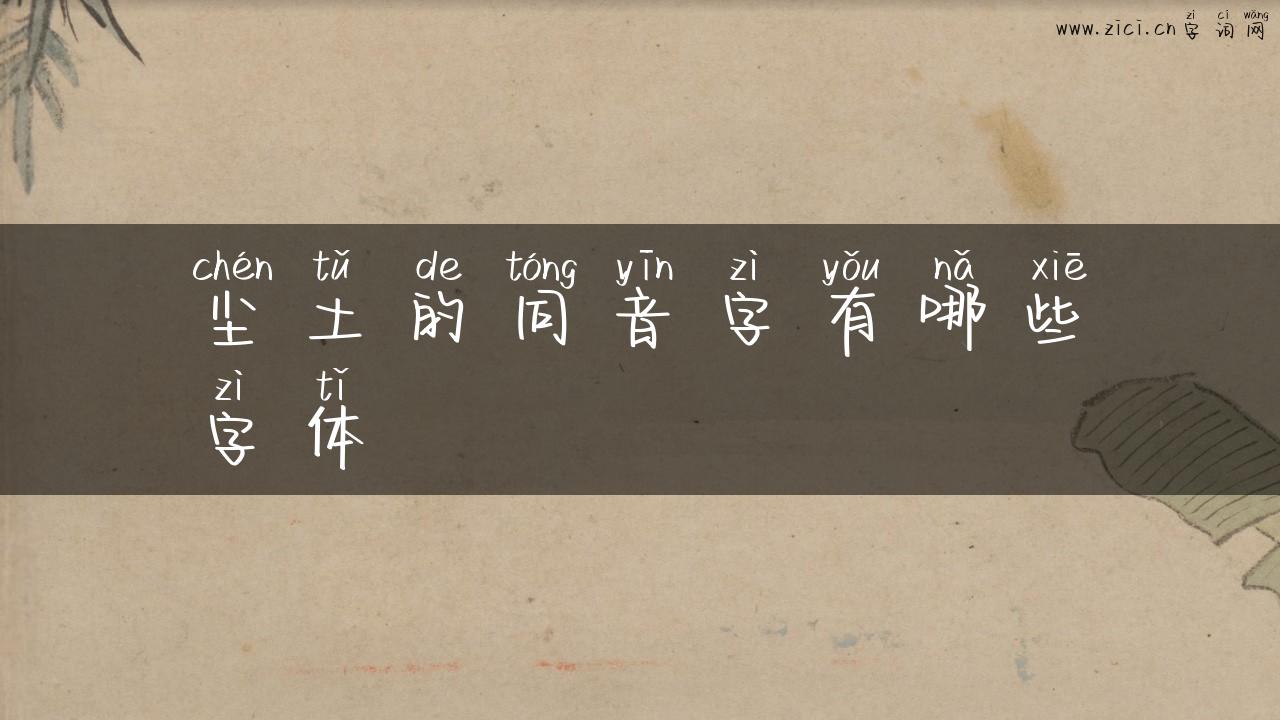 www.zici.cn 字词网
zì cí wǎng
chén tǔ de tóng yīn zì yǒu nǎ xiē
尘土的同音字有哪些
zì tǐ
字体